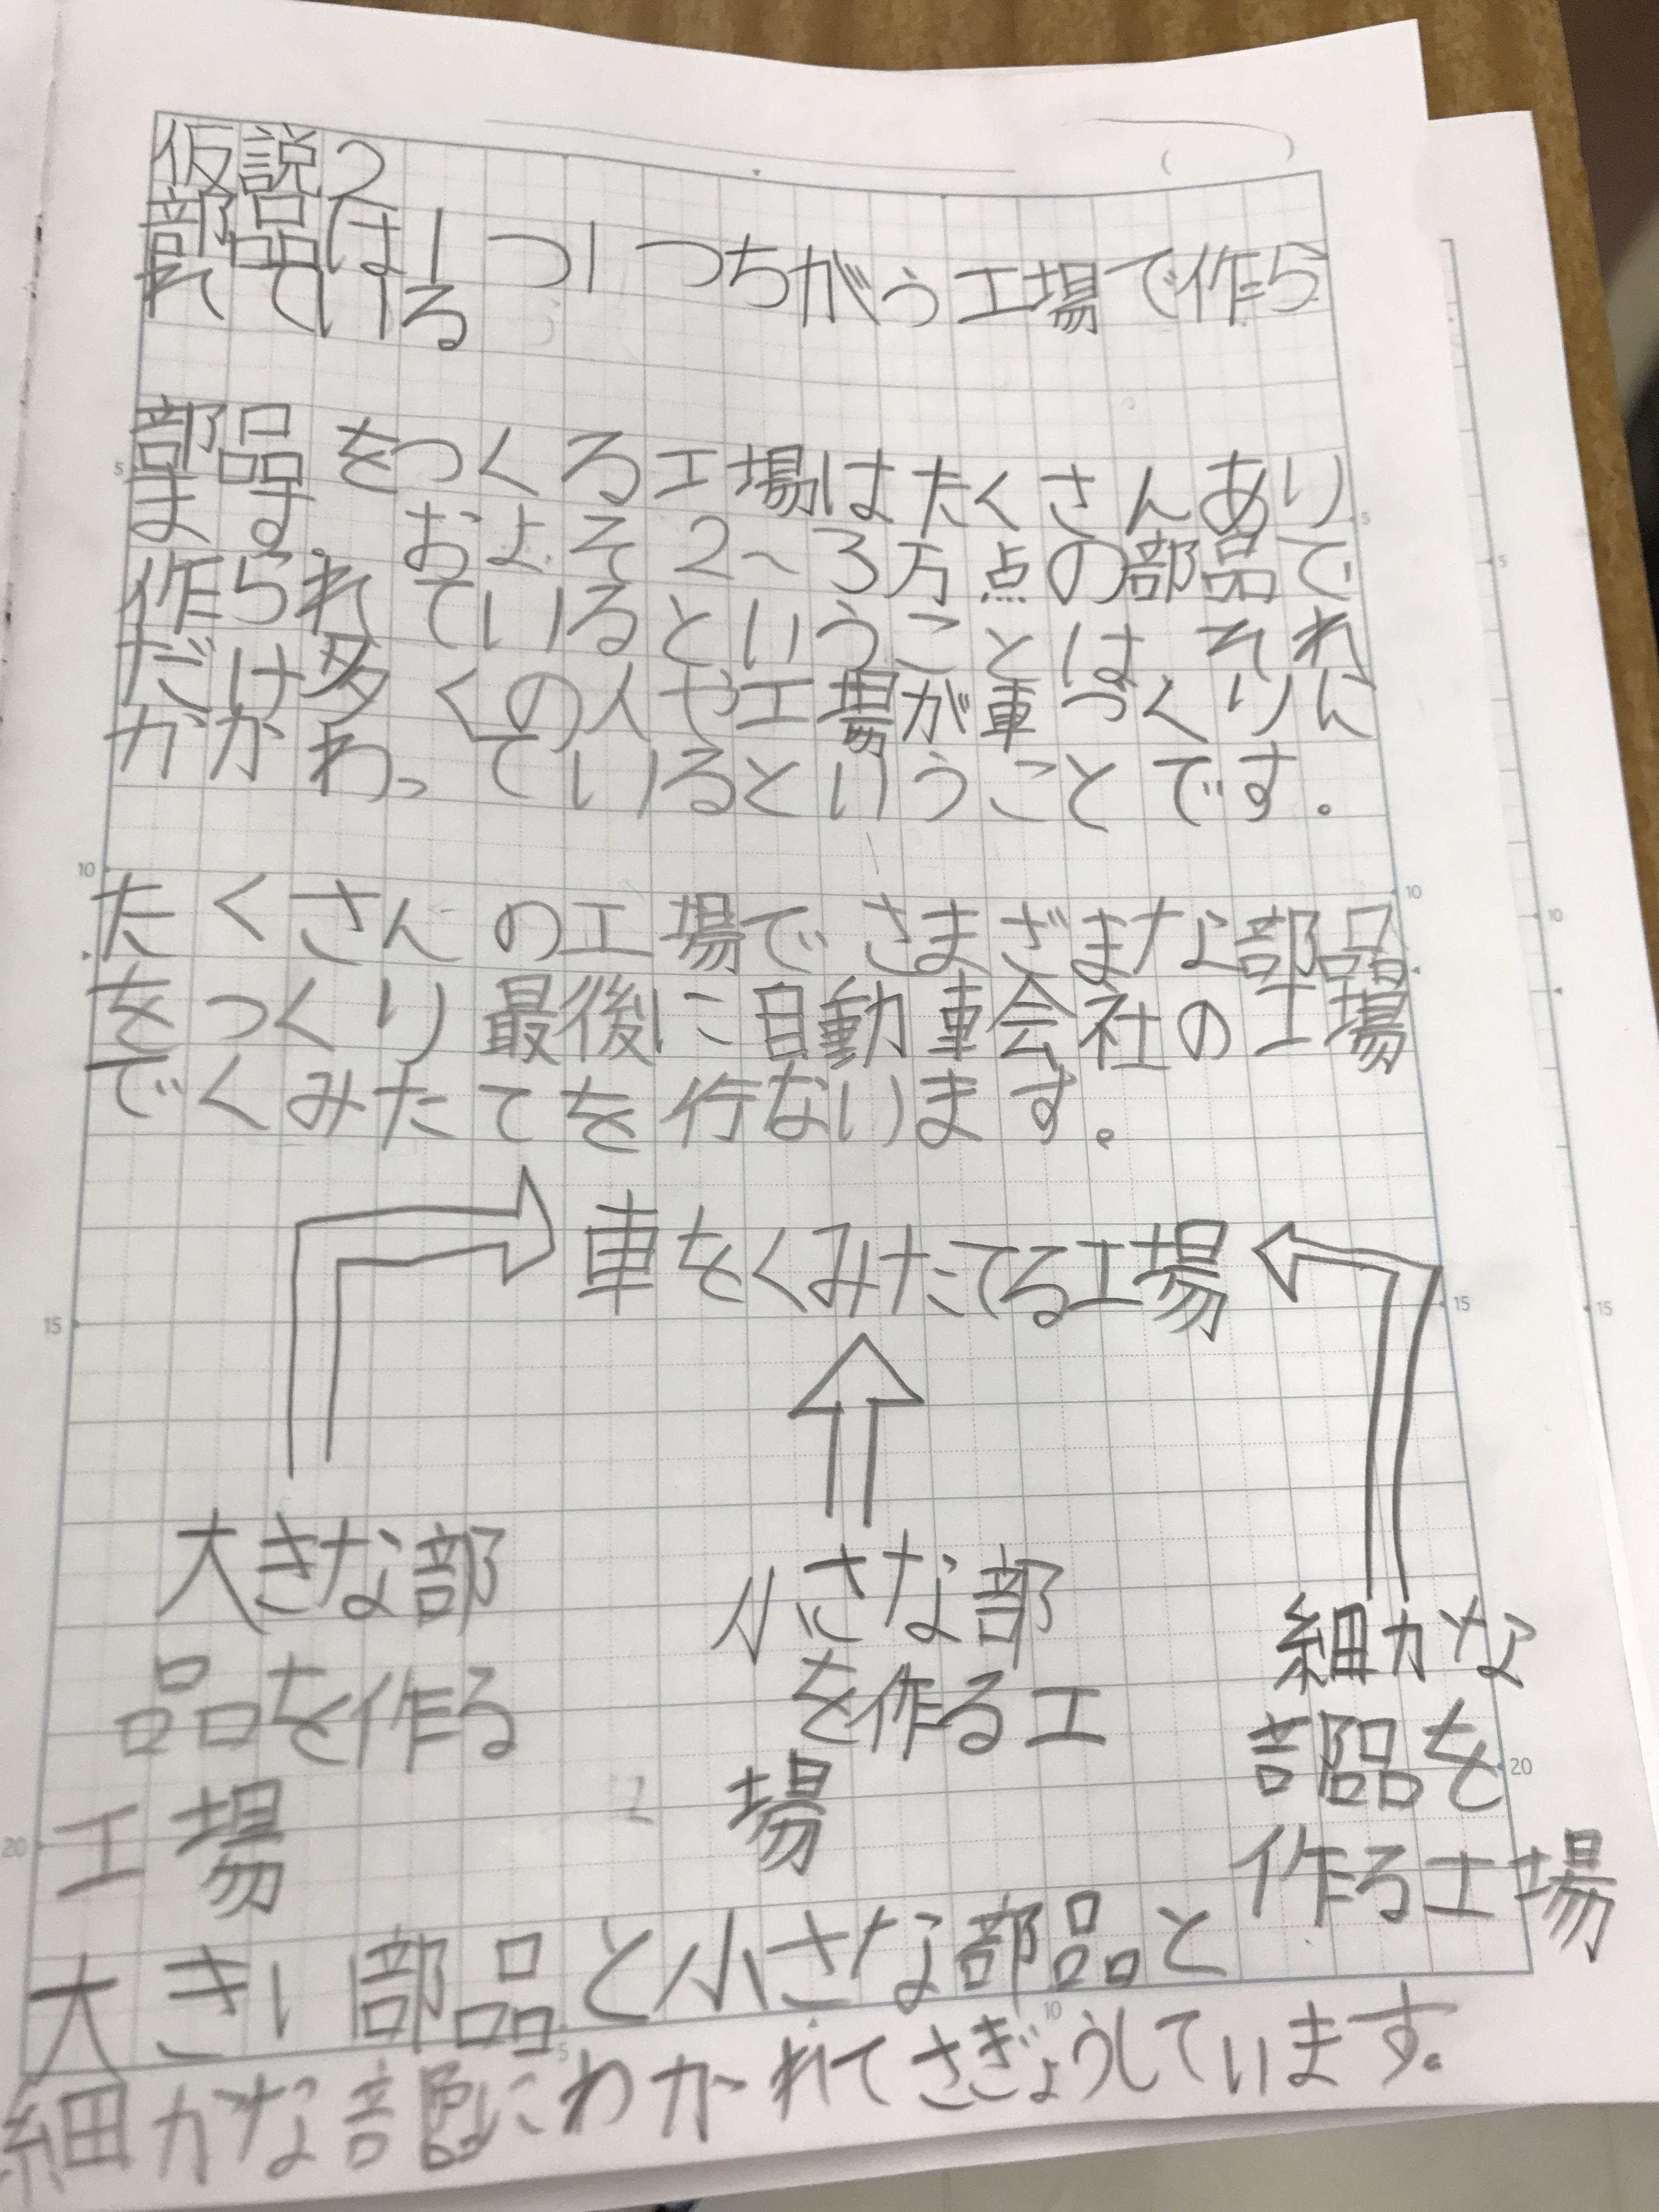 仮説2
部品は1つ1つちがう工場で作ら
れている
部品をつくる工場はたくさんあり
ます。およそ2～3万点の部品で
作られているということは、それ
だけ多くの人や工場が車づくりに
かかわっているということです。
たくさんの工場でさまざまな部品
をつくり最後に自動車会社の工場
でくみたてを行ないます。
車をくみたてる工場
大きな部
品を作る
工場
小さな部
を作る工
場
細かな
部品を
作る工場
大きい部品と小さな部品と
細かな部品にわかれてさぎょうしています。
5
10
15
20
5
10
15
20
5
10
5
10
15